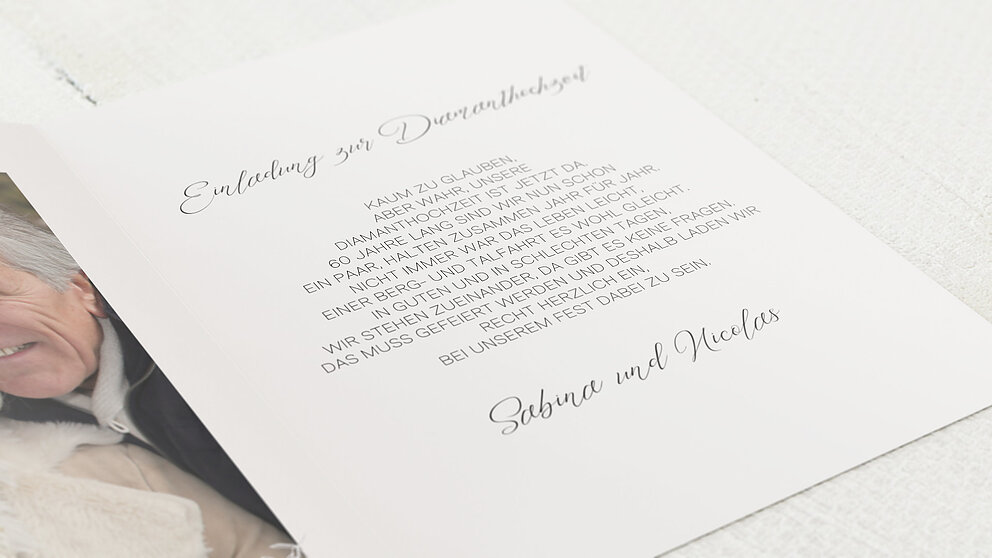 Einladung zur Diamanthochzeit
KAUM ZU GLAUBEN,
ABER WAHR, UNSERE
DIAMANTHOCHZEIT IST JETZT DA.
60 JAHRE LANG SIND WIR NUN SCHON
EIN PAAR, HALTEN ZUSAMMEN JAHR FÜR JAHR.
NICHT IMMER WAR DAS LEBEN LEICHT,
EINER BERG- UND TALFAHRT ES WOHL GLEICHT.
IN GUTEN UND IN SCHLECHTEN TAGEN,
WIR STEHEN ZUEINANDER, DA GIBT ES KEINE FRAGEN.
DAS MUSS GEFEIERT WERDEN UND DESHALB LADEN WIR
RECHT HERZLICH EIN,
BEI UNSEREM FEST DABEI ZU SEIN,
Sabina und Nicolas